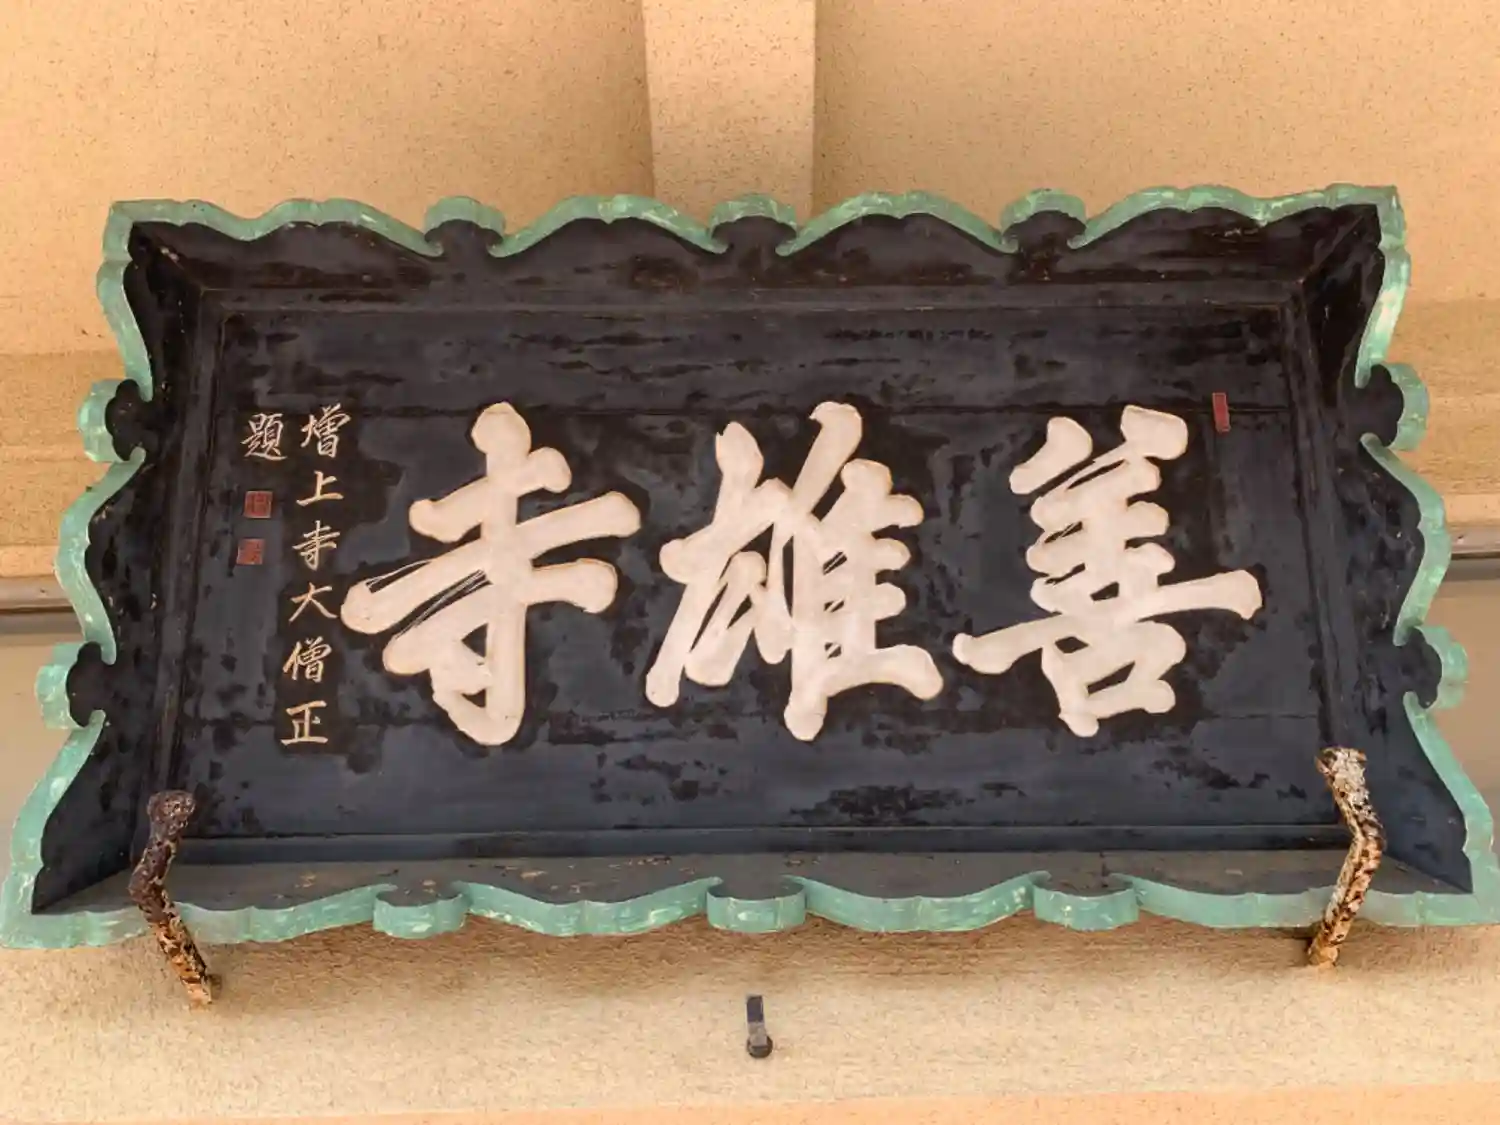 善雄寺
增上寺大僧正
題